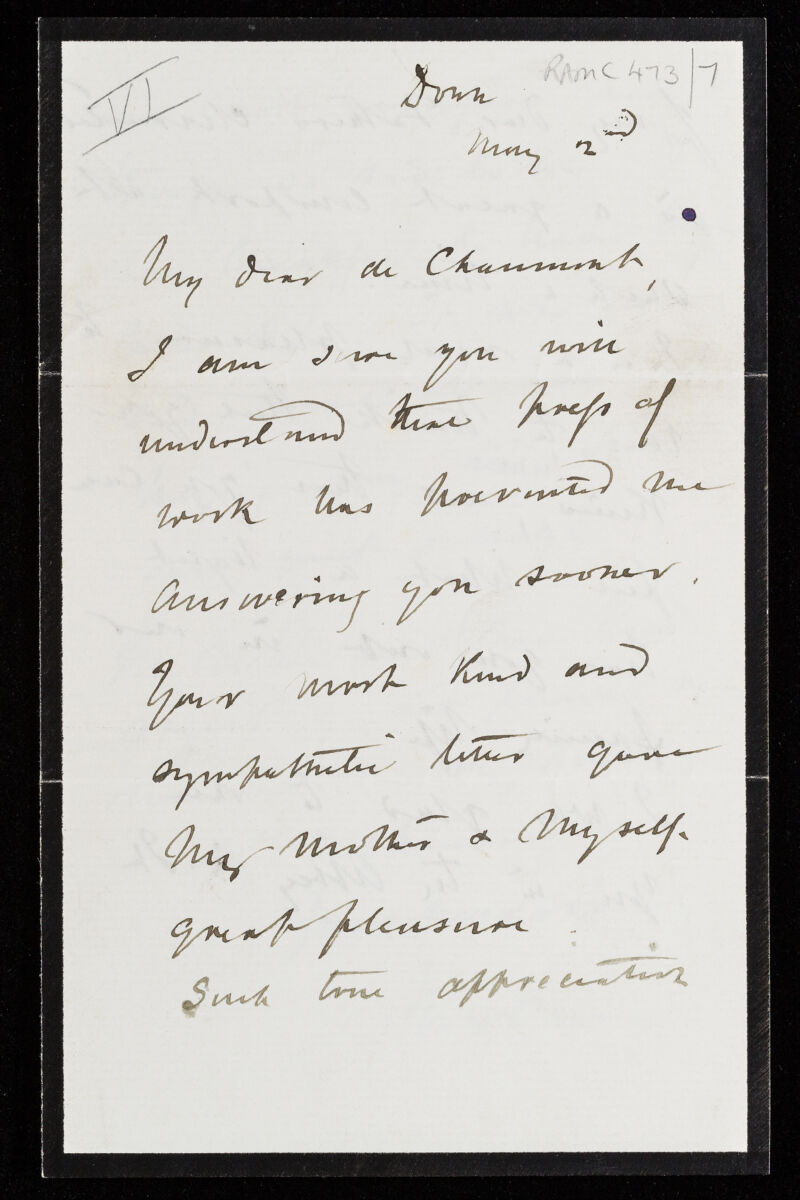 VI
RAMC 473/7
Down
May 2nd
My dear de Chaumont,
I am sure you will
understand that press of
work has prevented me
answering you sooner.
Your most kind and
sympathetic letter gave
My Mother & Myself
great pleasure
Such true appreciation